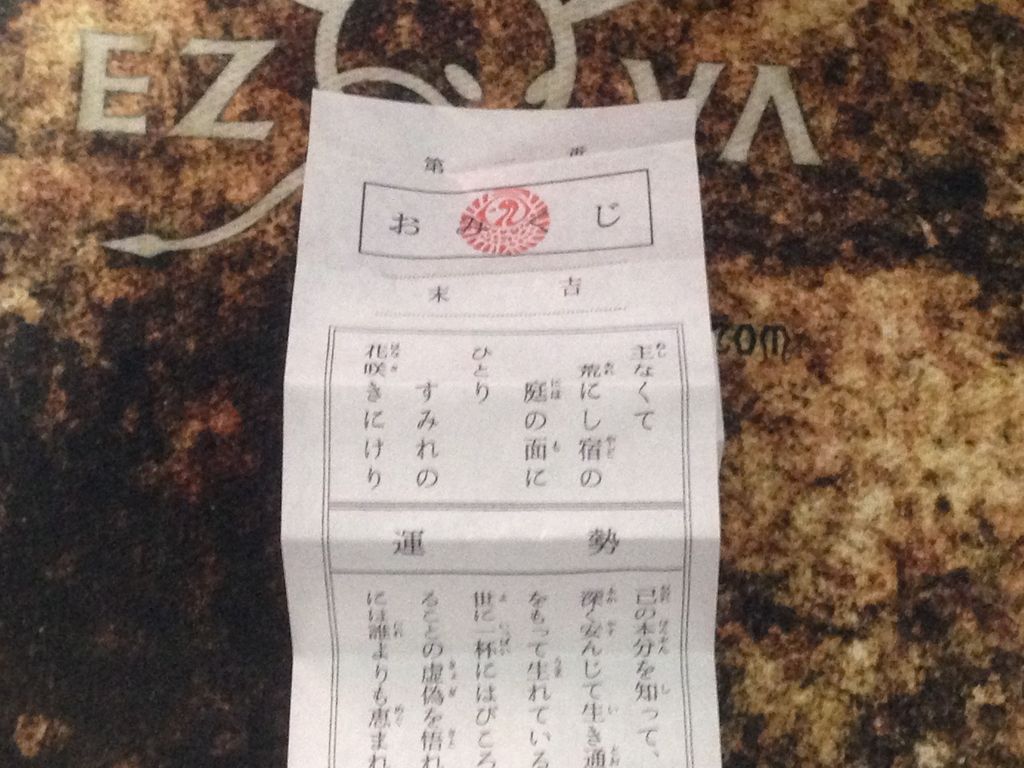 EZ VA
.com
第 番
おみくじ
末 吉
主なくて
荒にし宿の
庭の面に
ひとり
すみれの
花咲きにけり
運 勢
己の本分を知って、
深く安んじて生き通
をもって生れている
世に一杯にはびころ
ることの虚偽を悟れ
には誰よりも恵まれ